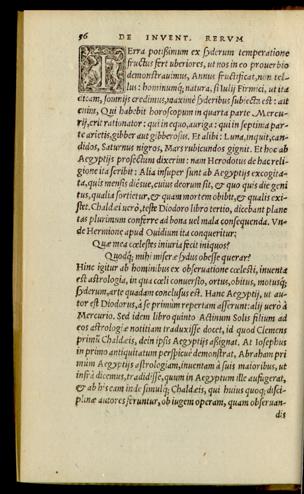 56 DE INVENT. RERVM
TErra potißimum ex syderum temperatione
fructus fert uberiores, ut nos in eo prouerbio
demonstrauimus, Annus fructificat, non tel-
lus: hominumq; natura, si Iulij Firmici, ut ita
dicam, somnijs credimus, maximè syderibus subiecta est: ait
enim, Qui habebit horoscopum in quarta parte Mercu-
rij, erit rationator: qui in equo, auriga: qui in septima par-
te arietis, gibber aut gibberosus. Et alibi: Luna, inquit, can-
didos, Saturnus nigros, Mars rubicundos gignit. Et hoc ab
Aegyptijs profectum dixerim: nam Herodotus de hac reli-
gione ita scribit: Alia insuper sunt ab Aegyptijs excogita-
ta, quis mensis dièsue, cuius deorum sit, & quo quis die geni-
tus, qualia sortietur, & quam mortem obibit, & qualis exi-
stet. Chaldæi uerò, teste Diodoro libro tertio, dicebant plane
tas plurimum conferre ad bona uel mala consequenda. Vn-
de Hermione apud Ouidium ita conqueritur:
Quæ mea cœlestes iniuria fecit iniquos?
Quodq; mihi miseræ sydus obesse querar?
Hinc igitur ab hominibus ex obseruatione cœlesti, inuenta
est astrologia, in qua cœli conuersio, ortus, obitus, motusq;
syderum, arte quadam conclusus est. Hanc Aegyptij, ut au-
tor est Diodorus, à se primùm repertam asserunt: alij uerò à
Mercurio. Sed idem libro quinto Actinum Solis filium ad
eos astrologiæ notitiam traduxisse docet, id quod Clemens
primùm Chaldæis, dein ipsis Aegyptijs aßignat. At Iosephus
in primo antiquitatum perspicuè demonstrat, Abraham pri
mùm Aegyptijs astrologiam, inuentam à suis maioribus, ut
infrà dicemus, tradidisse, quum in Aegyptum ille aufugerat,
& ab his eam inde simulq; Chaldæis, qui huius quoq; disci-
plinæ autores feruntur, ob iugem operam, quam obseruan-
dis